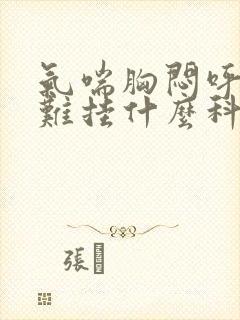 氣喘胸悶呼
難挂什麼科
張